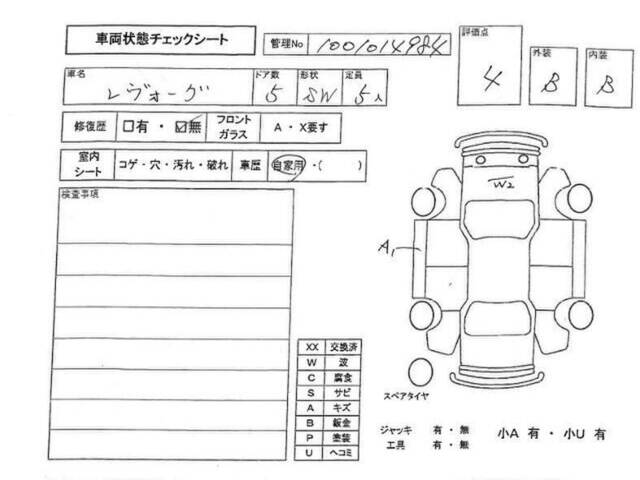 車両状態チェックシート
管理No 1001014984
評価点 4
外装 B
内装 B
車名 レヴォーグ
ドア数 5
形状 SW
定員 5人
修復歴 □有・☑無
フロントガラス A・X要す
室内シート コゲ・穴・汚れ・破れ
車歴 自家用・( )
検査事項
W2
A1
XX 交換済
W 波
C 腐食
S サビ
A キズ
B 鈑金
P 塗装
U ヘコミ
スペアタイヤ
ジャッキ 有・無
工具 有・無
小A 有・小U 有